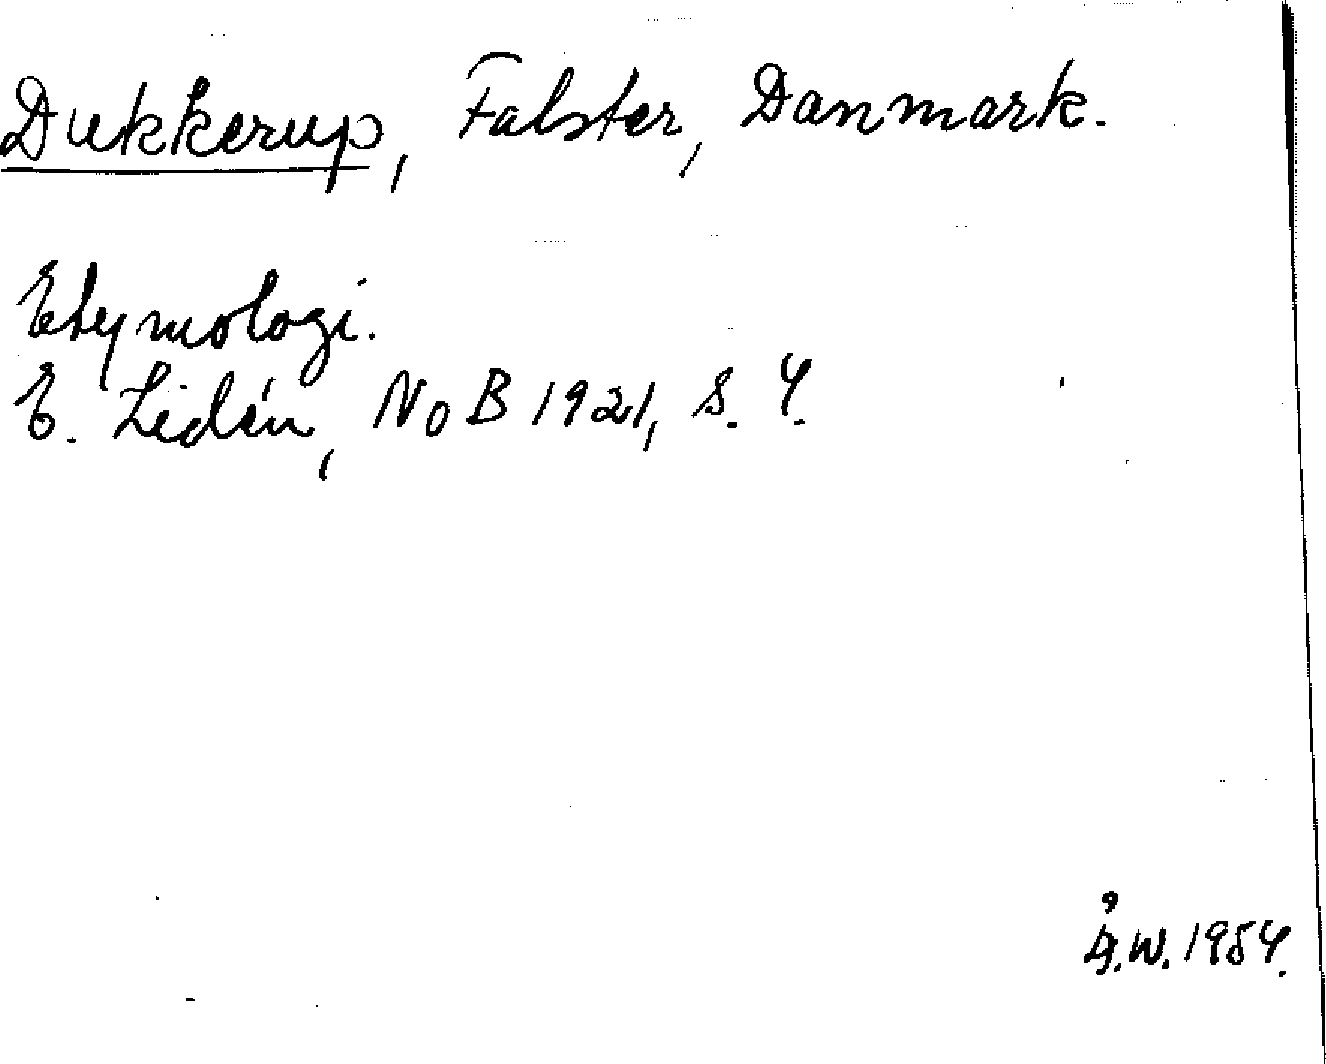 Dukkerup, Falster, Danmark.
Etymologi.
E. Lidén, NoB 1921, s. 4.
Å.W. 1954.